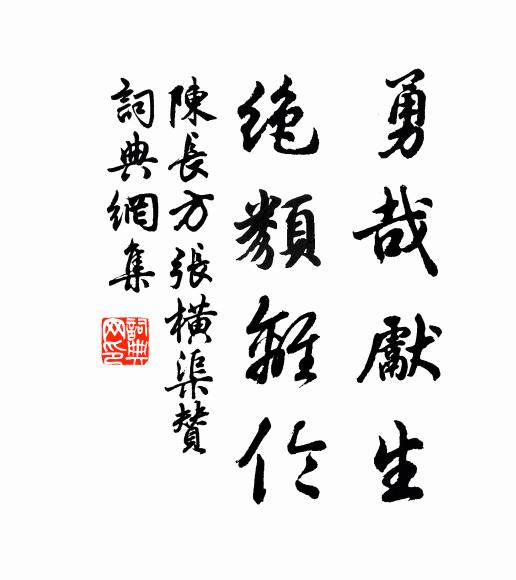 勇哉獻生
絶類離伦
陳長方張橫渠贊
詞典網集
詞典
网印